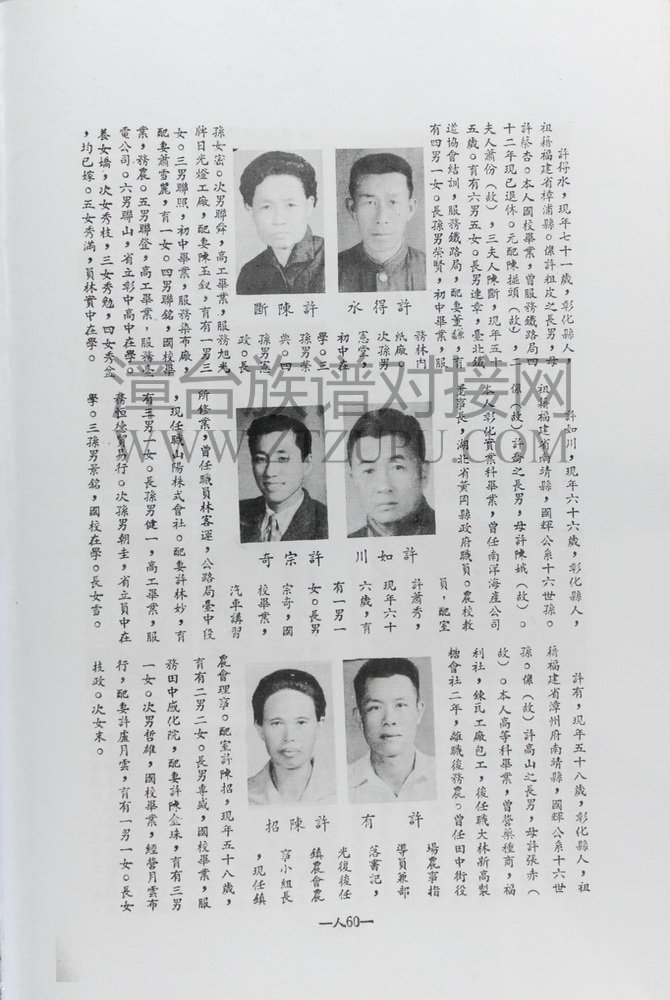 許得水，現年七十一歲，彰化縣人，
祖籍福建省樟浦縣。係許祖皮之長男，母
許蔡杏。本人國校畢業，曾服務鐵路局四
十二年現已退休。元配陳極頭（故），二
夫人蕭份（故），三夫人陳斷，現年五十
五歲。育有六男五女。長男連章，臺北鐵
道協會結訓，服務鐵路局，配妻董謙，育
有四男一女。長孫男榮賢，初中畢業，服
許得水
許陳斷
務林內
紙廠。
次孫男
憲堂，
初中在
學。三
孫男榮
典。四
孫男憲
政。長
孫女密。次男聯舜，高工畢業，服務旭光
牌日光燈工廠，配妻陳玉釵，育有一男三
女。三男聯照，初中畢業，服務染布廠，
配妻蕭雪麗，育一女。四男聯銘，國校畢
業，務農。五男聯登，高工畢業，服務臺
電公司。六男聯山，省立彰中高中在學。
養女嬌，次女秀枝，三女秀勉，四女秀盆
，均已嫁。五女秀滿，員林實中在學。
許如川，現年六十六歲，彰化縣人，
祖籍福建省南靖縣，國輝公系十六世孫。
係（故）許為之長男，母許陳娥（故）。
本人彰化實業科畢業，曾任南洋海產公司
董事長，湖北省黃岡縣政府職員。農校教
許如川
許宗奇
員，配室
許蕭秀，
現年六十
六歲，育
有一男一
女。長男
宗奇，國
校畢業，
汽車講習
所修業，曾任職員林客運，公路局臺中段
，現任職山陽株式會社。配妻許林妙，育
有三男一女。長孫男健一，高工畢業，服
務恒德貿易行。次孫男朝圭，省立員中在
學。三孫男景銘，國校在學。長女雪。
許有，現年五十八歲，彰化縣人，祖
籍福建省漳州府南靖縣，國輝公系十六世
孫。係（故）許高山之長男，母許張赤（
故）。本人高等科畢業，曾營藥種商，福
利社，鍊瓦工廠包工，後任職大林新高製
糖會社二年，離職後務農。曾任田中街役
許有
許陳招
場農事指
導員兼部
落書記，
光復後任
鎮農會農
事小組長
，現任鎮
農會理事。配室許陳招，現年五十八歲，
育有二男二女。長男專盛，國校畢業，服
務田中感化院，配妻許陳金珠，育有三男
一女。次男哲雄，國校畢業，經營月雲布
行，配妻許盧月雲，育有一男一女。長女
技政。次女末。
—人60—
漳台族谱对接网
WWW.ZTZUPU.COM